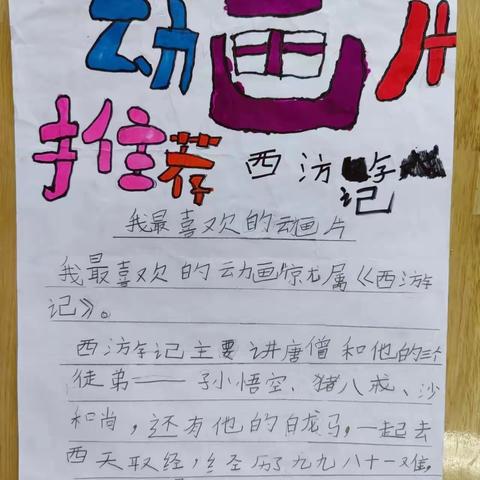 动画片
推荐
西游记
我最喜欢的动画片
我最喜欢的动画惊尤属《西游
记》。
西游记主要讲唐僧和他的三个
徒弟——孙小悟空、猪八戒、沙
和尚,还有他的白龙马,一起去
西天取经,经历了九九八十一难,